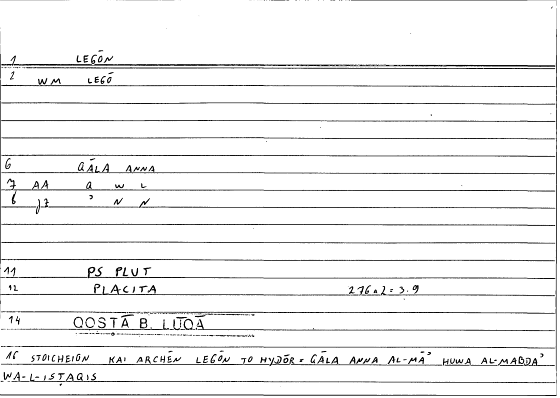 1 LEGŌN
2 WM LEGŌ
6 QĀLA ANNA
7 AA Q W L
8 J7 ʾ N N
11 PS PLUT
12 PLACITA 276a2=3.9
14 QOSṬĀ B. LŪQĀ
16 STOICHEIŌN KAI ARCHĒN LEGŌN TO HYDŌR = QĀLA ANNA AL-MĀʾ HUWA AL-MABDAʾ
WA-L-ISṬAQIS